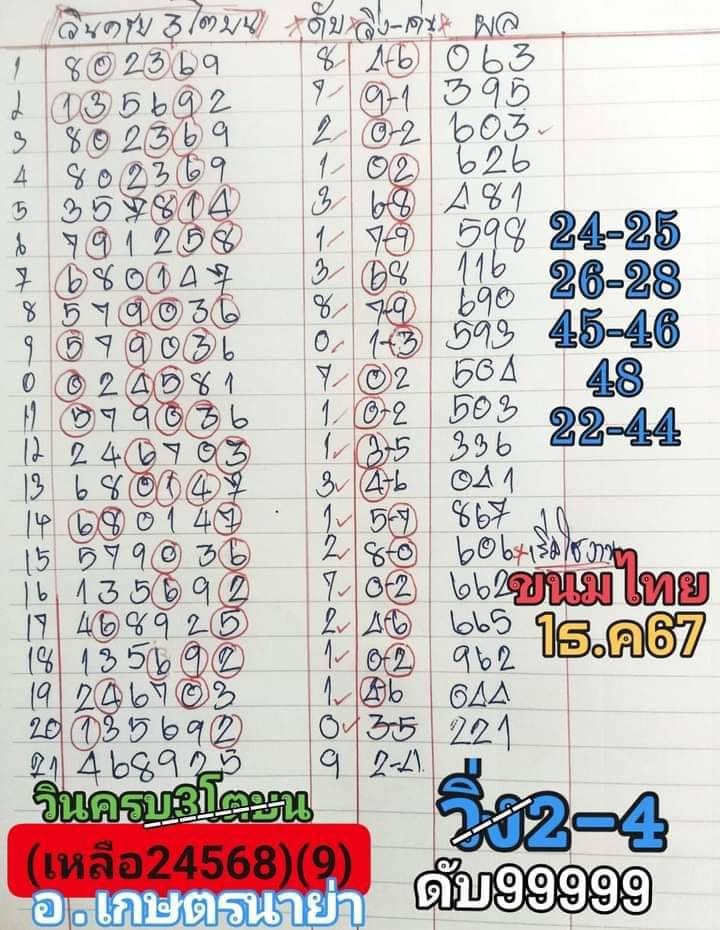 วินครบ 3 โตบน * ดับ * วิ่ง-เด่น * ผล
1 802369 8 4-6 063
2 135692 7 9-1 395
3 802369 2 0-2 603
4 802369 1 02 626
5 357814 3 6-8 481
6 791258 1 7-9 598
7 680147 3 68 116
8 579036 8 7-9 690
9 579036 0 1-3 593
0 024581 7 02 504
11 579036 1 0-2 503
12 246703 1 3-5 336
13 680147 3 4-6 041
14 680147 1 5-7 867
15 579036 2 8-0 606
16 135692 7 0-2 662
17 468925 2 4-6 665
18 135692 1 0-2 962
19 246703 1 46 044
20 135692 0 3-5 221
21 468925 9 2-4
24-25
26-28
45-46
48
22-44
ขนมไทย
1ธ.ค67
วินครบ3โตบน
(เหลือ24568)(9)
อ.เกษตรนาย่า
วิ่ง2-4
ดับ99999